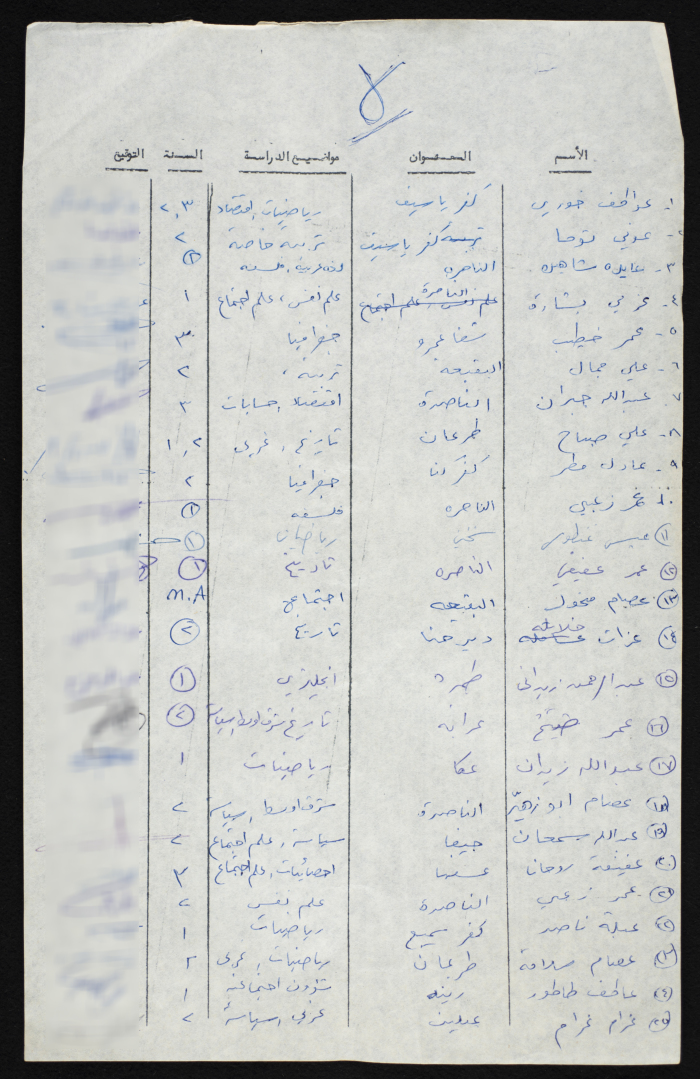 ٨
الأسم العنوان مواضيع الدراسة السنة التوقيع
١- عواطف خوري كفر ياسيف رياضيات، اقتصاد ٢،٣
عوني توما كفر ياسيف تربية خاصة ٢
٣- عايده شاهين الناصره لغه عربية، فلسفه ١
٤- عزمي بشارة الناصرة علم نفس، علم اجتماع ١
٥- عمر خطيب شفا عمرو جغرافيا ٣
٦- علي جمال البقيعه تربية ٢
٧- عبدالله جبران الناصرة اقتصاد، حسابات ٣
٨- علي صباح طرعان تاريخ، عربي ١،٢
٩- عادل مطر كفركنا جغرافيا ٢
١٠- عمر زعبي الناصره فلسفه ١
١١ عيسى سخنين رياضيات
١٢ عمر عفيفي الناصره تاريخ ١
١٣ عصام مخول البقيعه اجتماع M.A
١٤ عزات خلايله دير حنا تاريخ ٢
١٥ عبدالرحمن زيداني طمره انجليزي ١
١٦ عمر عرابه تاريخ شرق اوسط، سياسة ٢
١٧ عبدالله زيدان عكا رياضيات ١
١٨ عصام ابو زهيّر الناصرة شرق اوسط، سياسة ٢
١٩ عبدالله سمعان حيفا سياسة، علم اجتماع ٢
٢٠ عفيفة روحانا عسفيا احصائيات، علم اجتماع ٣
٢١ عمر زعبي الناصرة علم نفس ٢
٢٢ عبلة ناصر كفر سميع رياضيات ١
٢٣ عصام سلامة طرعان رياضيات، عربي ٢
٢٤ عاطف طاطور رينه شؤون اجتماعيه ١
٢٥ غرام غرام عيلبون عربي، سياسة ٢